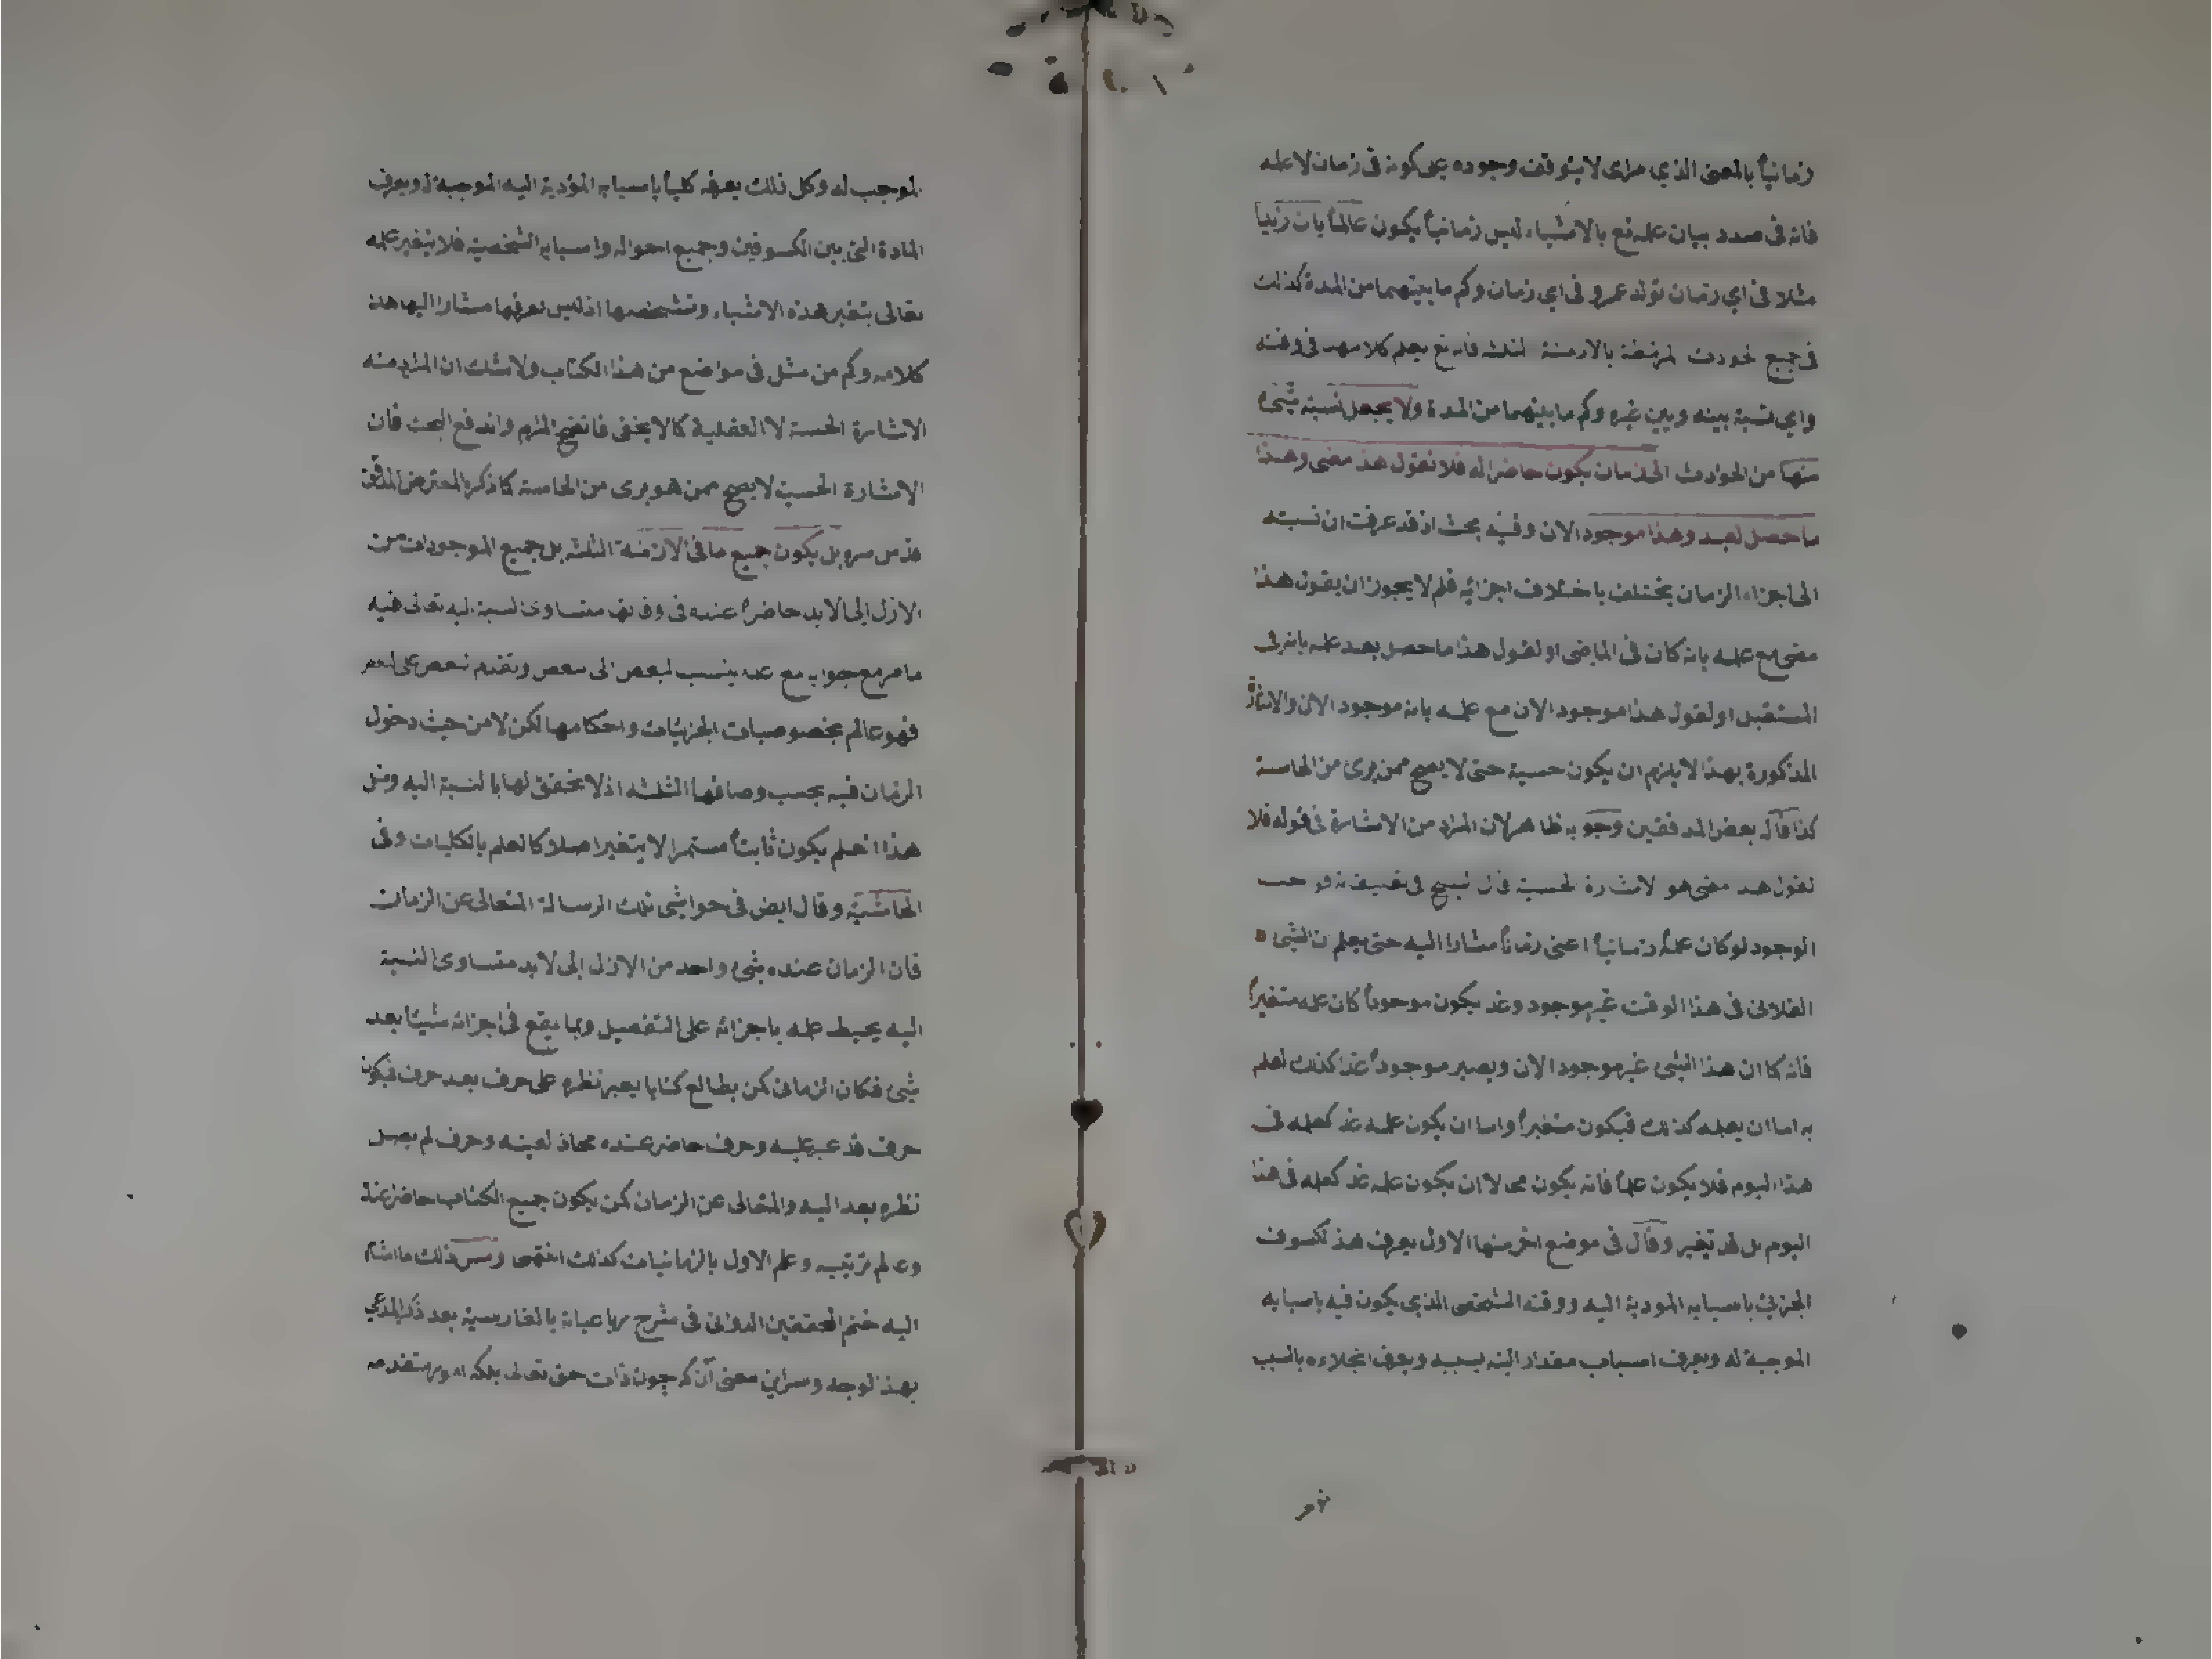 زمانياً بالمعنى الذي مرای لا يتوقف وجوده على كونه فى زمان لا علمه
فانه فى صدد بيان علمه تع بالاشياء ليس زمانياً يكون عالماً بان زيدا
مثلا فى اي زمان تولد عمرو فى اي زمان وكم ما بينهما من المدة كذلك
فى جميع الحوادث المرتبطة بالازمنة الثلثه فانه تع يعلم كلا منهم فى وقته
واي نسبة بينه وبين غيره وكم ما بينهما من المدة ولا يجعل نسبة شىء
منها من الحوادث الى زمان يكون حاضرا له فلا نقول هذا مضى وهذا
ما حصل بعد وهذا موجود الان وفيه بحث اذ قد عرفت ان نسبته
الى اجزاء الزمان يختلف باختلاف اجزائه فلم لا يجوز ان يقول هذا
مضى مع علمه بانه كان فى الماضى او لقول هذا ما حصل بعد علمه بانه فى
المستقبل او لقول هذا موجود الان مع علمه بانه موجود الان والاشارة
المذكورة بهذا لا يلزم ان يكون حسية حتى لا يصح ممن برئ من الحاسة
كذا قال بعض المدققين وجوابه ظاهر لان المراد من الاشارة فى قوله فلا
لقول هذا مضى هو الاشارة الحسية فان الشيخ فى تعليقاته واجب
الوجود لو كان علمه زمانياً اعنى زماناً مشارا اليه حتى يعلم ان الشىء
الفلانى فى هذا الوقت غير موجود وغدا يكون موجوداً كان علمه متغيراً
فانه كما ان هذا الشىء غير موجود الان ويصير موجوداً غدا كذلك لعلم
به اما ان يعلمه كذلك فيكون متغيراً واما ان يكون علمه غدا كعلمه فى
هذا اليوم فلا يكون علماً فانه يكون محالا ان يكون علمه غدا كعلمه فى هذا
اليوم بل قد تغير وقال فى موضع اخر منها الاول يعرف هذا الكسوف
الجزئى باسبابه المودية اليه ووقته الشخصى الذي يكون فيه باسبابه
الموجبة له ويعرف اسباب مقدار البثه بسببه ويعرف انجلاءه بالسبب
الموجب له وكل ذلك يعرفه كلياً باسبابه المؤدية اليه الموجبة له ويعرف
المادة التى بين الكسوفين وجميع احواله واسبابه الشخصية فلا يتغير علمه
تعالى بتغير هذه الاشياء وتشخصها اذ ليس يعرفها مشارا اليها هذا
كلامه وكم من مثل فى مواضع من هذا الكتاب ولا شك ان المراد منه
الاشارة الحسية لا العقلية كما لا يخفى فاتضح المرام واندفع البحث فان
الاشارة الحسية لا يصح ممن هو برى من الحاسة كما ذكره المعترض المدقق
قدس سره بل يكون جميع ما فى الازمنة الثلثه بل جميع الموجودات من
الازل الى الابد حاضرا عنده فى وقاتها متساوى النسبة اليه تعالى فيه
ما مر مع جوابه مع علمه ينسب لبعض الى بعض وتقدم بعض على بعض
فهو عالم بخصوصيات الجزئيات واحكامها لكن لا من حيث دخول
الزمان فيه بحسب وصافها الثلثه اذ لا تحقق لها بالنسبة اليه ومثل
هذا العلم يكون ثابتاً مستمرا لا يتغير اصلا كالعلم بالكليات وفى
الحاشية وقال ايض فى حواشى تلك الرسالة المتعالى عن الزمان
فان الزمان عنده شىء واحد من الازل الى الابد متساوى النسبة
اليه يحيط علمه باجزائه على التفصيل وبما يقع فى اجزائه شيئا بعد
شىء فكان الزمانى كمن يطالع كتابا يعبر نظره على حرف بعد حرف فيكون
حرف قد عبر عليه وحرف حاضر عنده محاذ لعينه وحرف لم يصل
نظره بعد اليه والمتعالى عن الزمان كمن يكون جميع الكتاب حاضرا عنده
وعالم ترتيبه وعلم الاول بالزمانيات كذلك انتهى ذلك ما اشار
اليه ختم المحققين الدوانى فى شرح رباعياته بالفارسية بعد ذكر المدعى
بهذا الوجه وسر اين معنى آن كه چون ذات حق تعالى بلكه